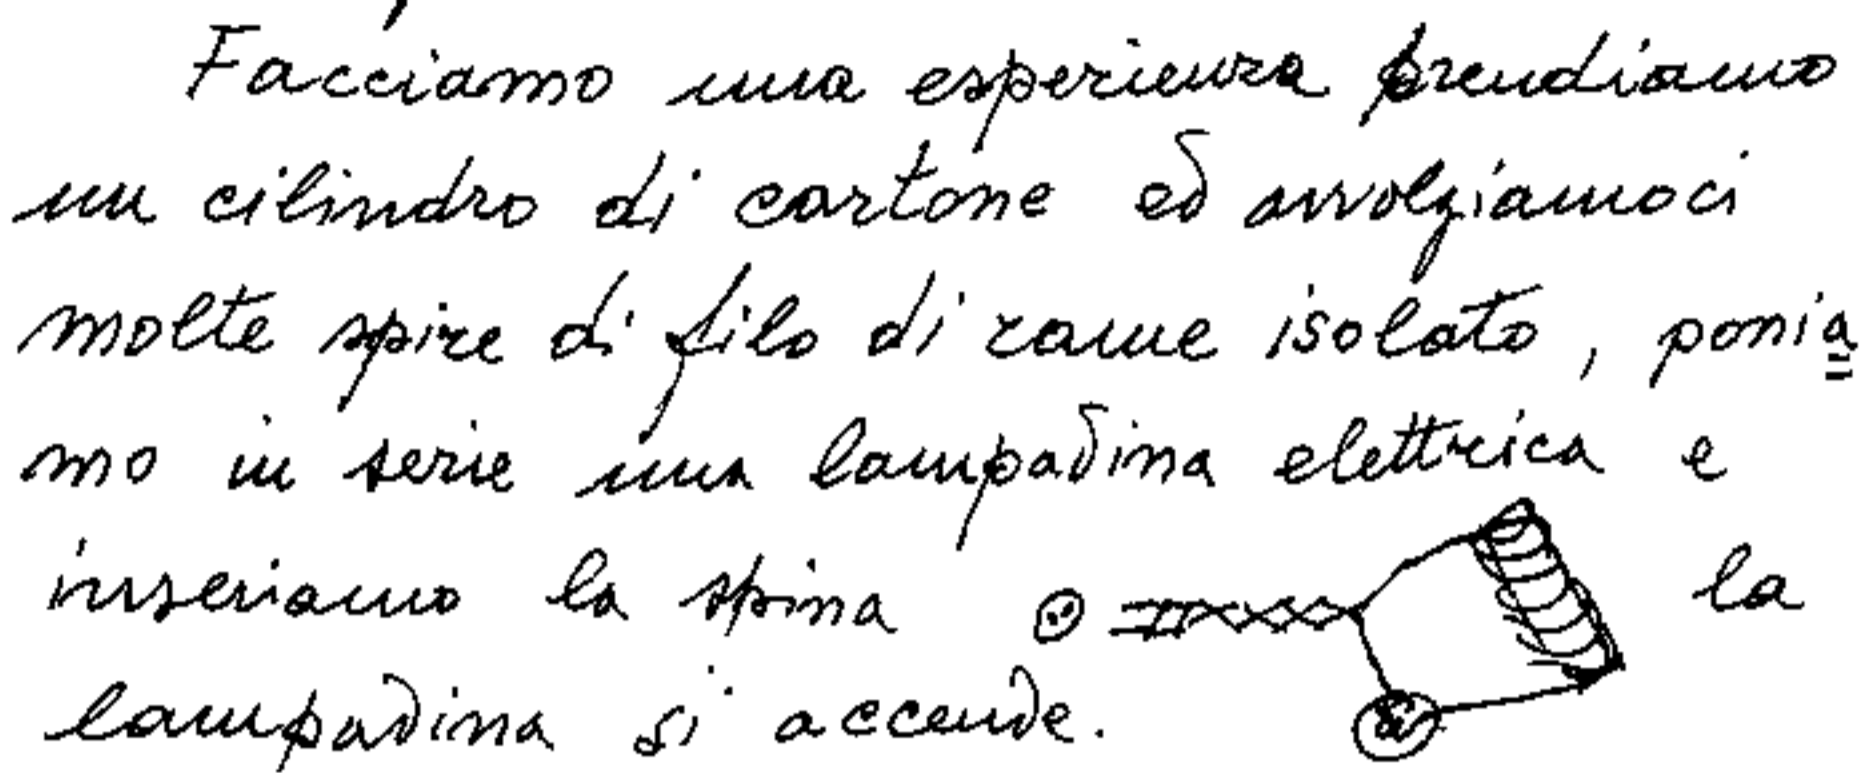 Facciamo una esperienza prendiamo
un cilindro di cartone ed avvolgiamoci
molte spire di filo di rame isolato, ponia=
mo in serie una lampadina elettrica e
inseriamo la spina la
lampadina si accende.